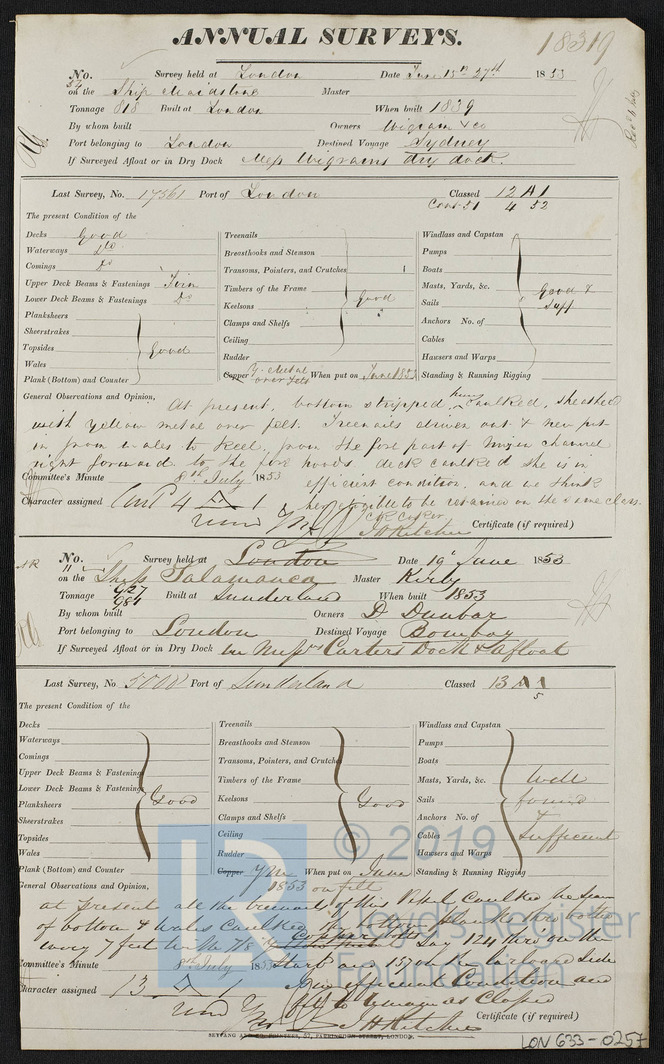 ANNUAL SURVEYS.
18319
No. 54 Survey held at London Date June 15th 27th 1853
on the Ship Maidstone Master
Tonnage 818 Built at London When built 1839
By whom built Owners Wigram & Co
Port belonging to London Destined Voyage Sydney
If Surveyed Afloat or in Dry Dock Messrs Wigrams dry dock.
Last Survey, No. 17561 Port of London Classed 12 A 1
Cont. 51 4 52
The present Condition of the
Decks Good
Waterways Do
Comings Do
Upper Deck Beams & Fastenings Firm
Lower Deck Beams & Fastenings Do
Planksheers
Sheerstrakes
Topsides Good
Wales
Plank (Bottom) and Counter
Treenails
Breasthooks and Stemson
Transoms, Pointers, and Crutches
Timbers of the Frame
Keelsons Good
Clamps and Shelfs
Ceiling
Rudder
Copper Y. Metal over felt When put on June 1853
Windlass and Capstan
Pumps
Boats
Masts, Yards, &c. Good &
Sails Suff
Anchors No. of
Cables
Hawsers and Warps
Standing & Running Rigging
General Observations and Opinion, At present, bottom stripped, caulked, sheathed
with yellow metal over felt. Treenails driven out & new put
in from wales to keel, from the fore part of mizen channel
right forward to the fore hoods, deck caulked she is in
Committee's Minute 8th July 1853 efficient condition, and we think
Character assigned Cont 4 A 1 her eligible to be retained on the same class.
J H Ritchie Certificate (if required)
AR
No. 11 Survey held at London Date 19 June 1853
on the Ship Salamanca Master Kirby
Tonnage 927 984 Built at Sunderland When built 1853
By whom built Owners D Dunbar
Port belonging to London Destined Voyage Bombay
If Surveyed Afloat or in Dry Dock in Messrs Carters Dock & Afloat
Last Survey, No 5008 Port of Sunderland Classed 13 A 1
5
The present Condition of the
Decks
Waterways
Comings
Upper Deck Beams & Fastenings
Lower Deck Beams & Fastenings
Planksheers Good
Sheerstrakes
Topsides
Wales
Plank (Bottom) and Counter
Treenails
Breasthooks and Stemson
Transoms, Pointers, and Crutches
Timbers of the Frame
Keelsons Good
Clamps and Shelfs
Ceiling
Rudder
Copper YM When put on June
1853 on felt
Windlass and Capstan
Pumps
Boats
Masts, Yards, &c. Well
Sails found
Anchors No. of &
Cables Sufficient
Hawsers and Warps
Standing & Running Rigging
General Observations and Opinion,
at present all the treenails of this Vessel Caulked the seams
of bottom & Wales Caulked
every 7 feet Say 124 thro on the
Committee's Minute 8th July 1853 Starb and 157 on the larboard Side
Character assigned 13 A 1 in efficient Condition and
fit to remain as Classed
J H Ritchie Certificate (if required)
© 2019
Lloyd's Register
Foundation
LON 633-0257